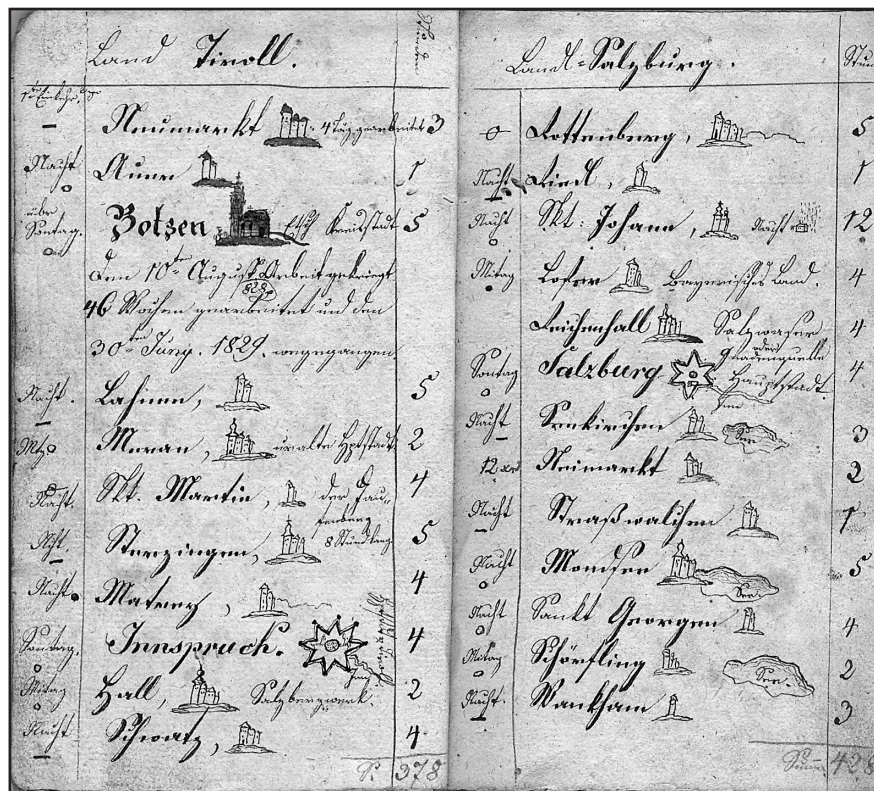 Land Tiroll.
Neumarkt 4 Täg gearbeitet 3
Nacht Auer 1
über
Sontag. Botzen Etsch Kreisstadt 5
Den 10ten August Arbeit gekriegt
829
46 Wochen gearbeitet und den
30ten Juny. 1829. wegegangen.
Nacht. Lahnen, 5
Mtg Meran, uralte Hptstadt. 2
Nacht. Skt. Martin, der Jau-
fenberg 4
Nht. Sterzingen, 8 Stund lang 5
Nacht. Materey, 4
Sontag. Innspruch. Inn Hauptstadt 4
Mitag Hall, Salzbergwerk. 2
Nacht Schwatz, 4
S. 378
Land-Salzburg. Stun
0 Rottenberg, 5
Nacht Riedl, 1
Nacht Skt: Johann, Nacht 12
Mitag Lofer Bayerisches Land. 4
Reichenhall Salzwaser 4
oder
Gradenquelle
Sontag Salzburg Hauptstadt. 4
Nacht Seekirchen See 3
12 Neimarkt 2
Nacht Straßwalchen 1
Nacht Mondsee See. 5
Nacht Sankt Georgen 4
Mitag Schörfling See. 2
Nacht. Wankham 3
Suma 428